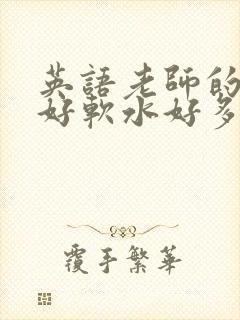 英語老師的
好軟水好多
覆手繁華